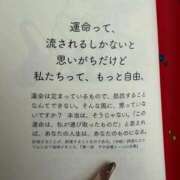 運命って、
流されるしかないと
思いがちだけど
私たちって、もっと自由。
運命は定まっているもので、抵抗すること
なんてできない。そんな風に、思っていな
いですか？ 本当は、そうじゃない。「この
運命は、私が選び取ったものだ」と思えれ
ば、あなたの人生は、あなたのものになる。